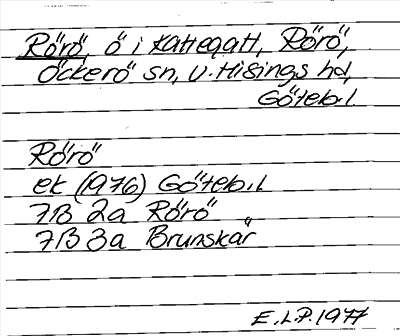 Rörö, ö i Kattegatt, Rörö,
Öckerö sn, V. Hisings hd,
Göteb.l.
Rörö
ek (1976) Göteb.l
7B 2a Rörö
7B 3a Brunskär
E.L.P. 1977